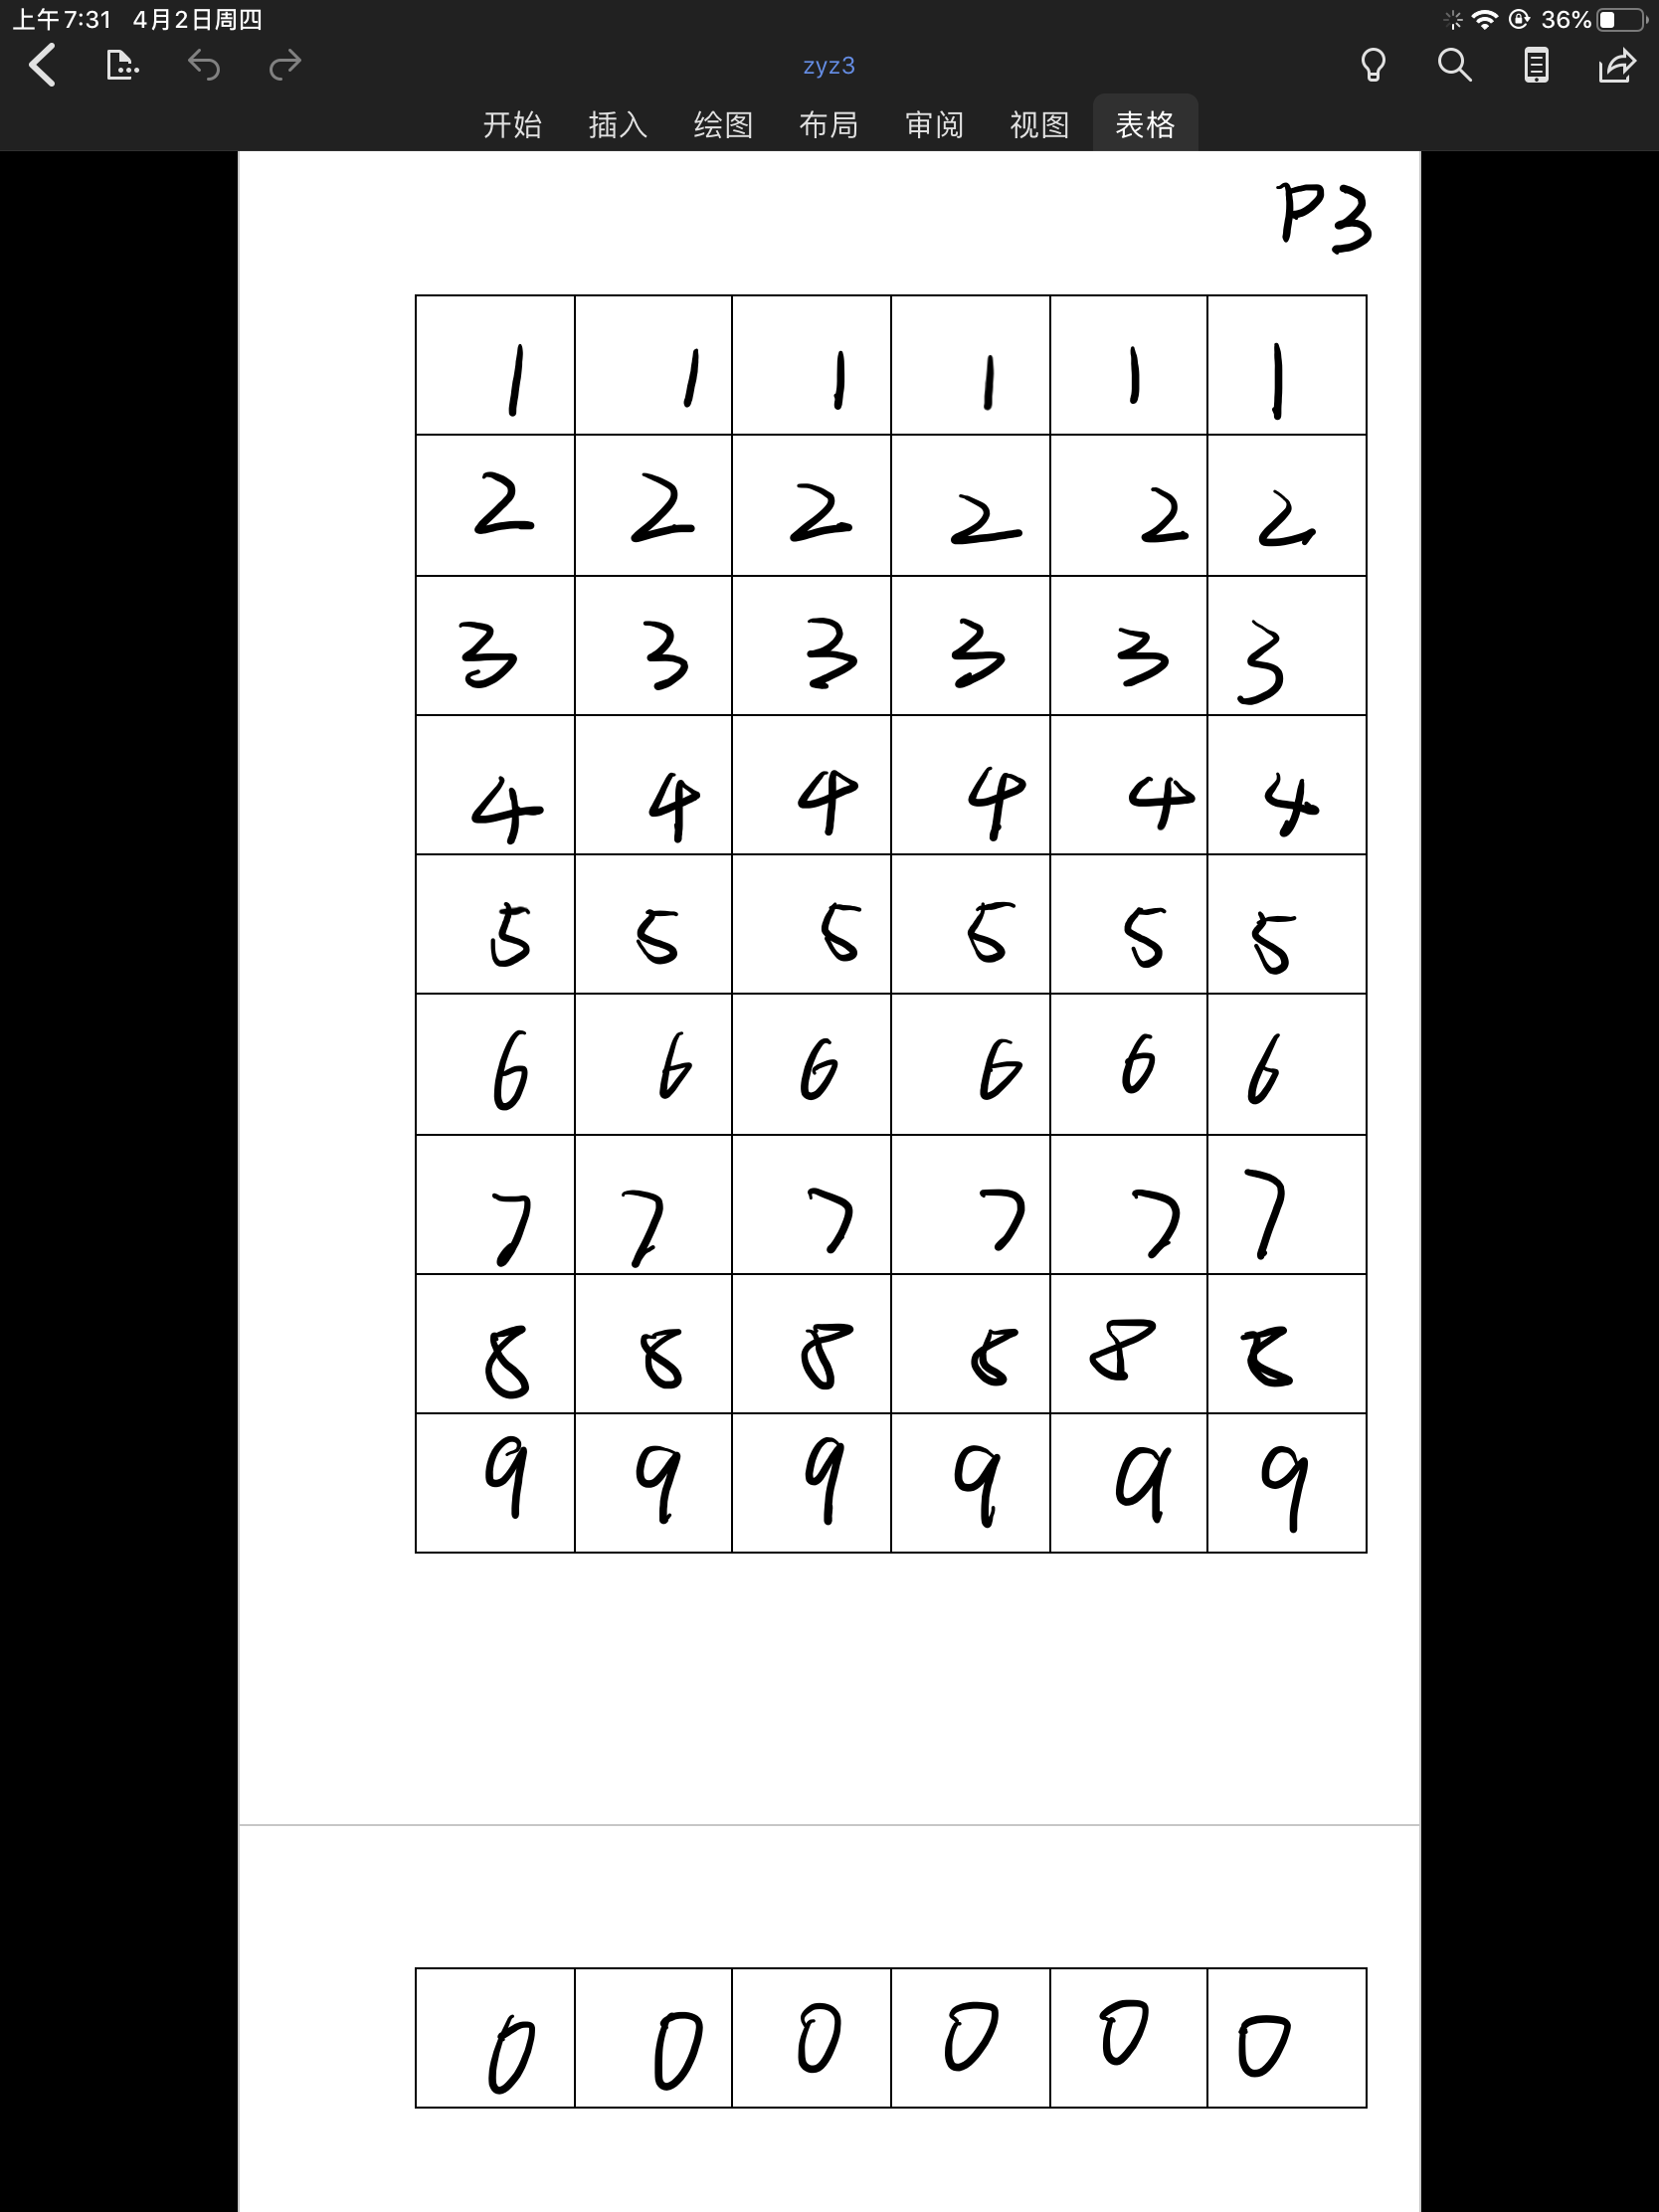 上午7:31 4月2日周四 36%
zyz3
开始 插入 绘图 布局 审阅 视图 表格
P3
1 1 1 1 1 1
2 2 2 2 2 2
3 3 3 3 3 3
4 4 4 4 4 4
5 5 5 5 5 5
6 6 6 6 6 6
7 7 7 7 7 7
8 8 8 8 8 8
9 9 9 9 9 9
0 0 0 0 0 0